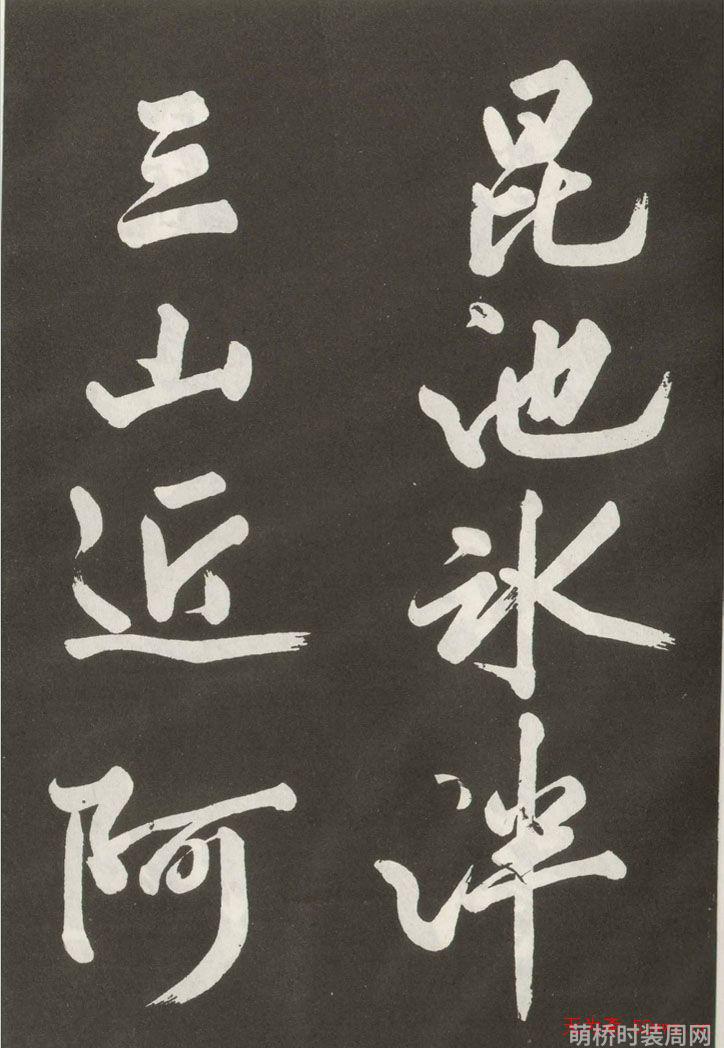 昆池氷泮
三山近阿
萌桥时装周网